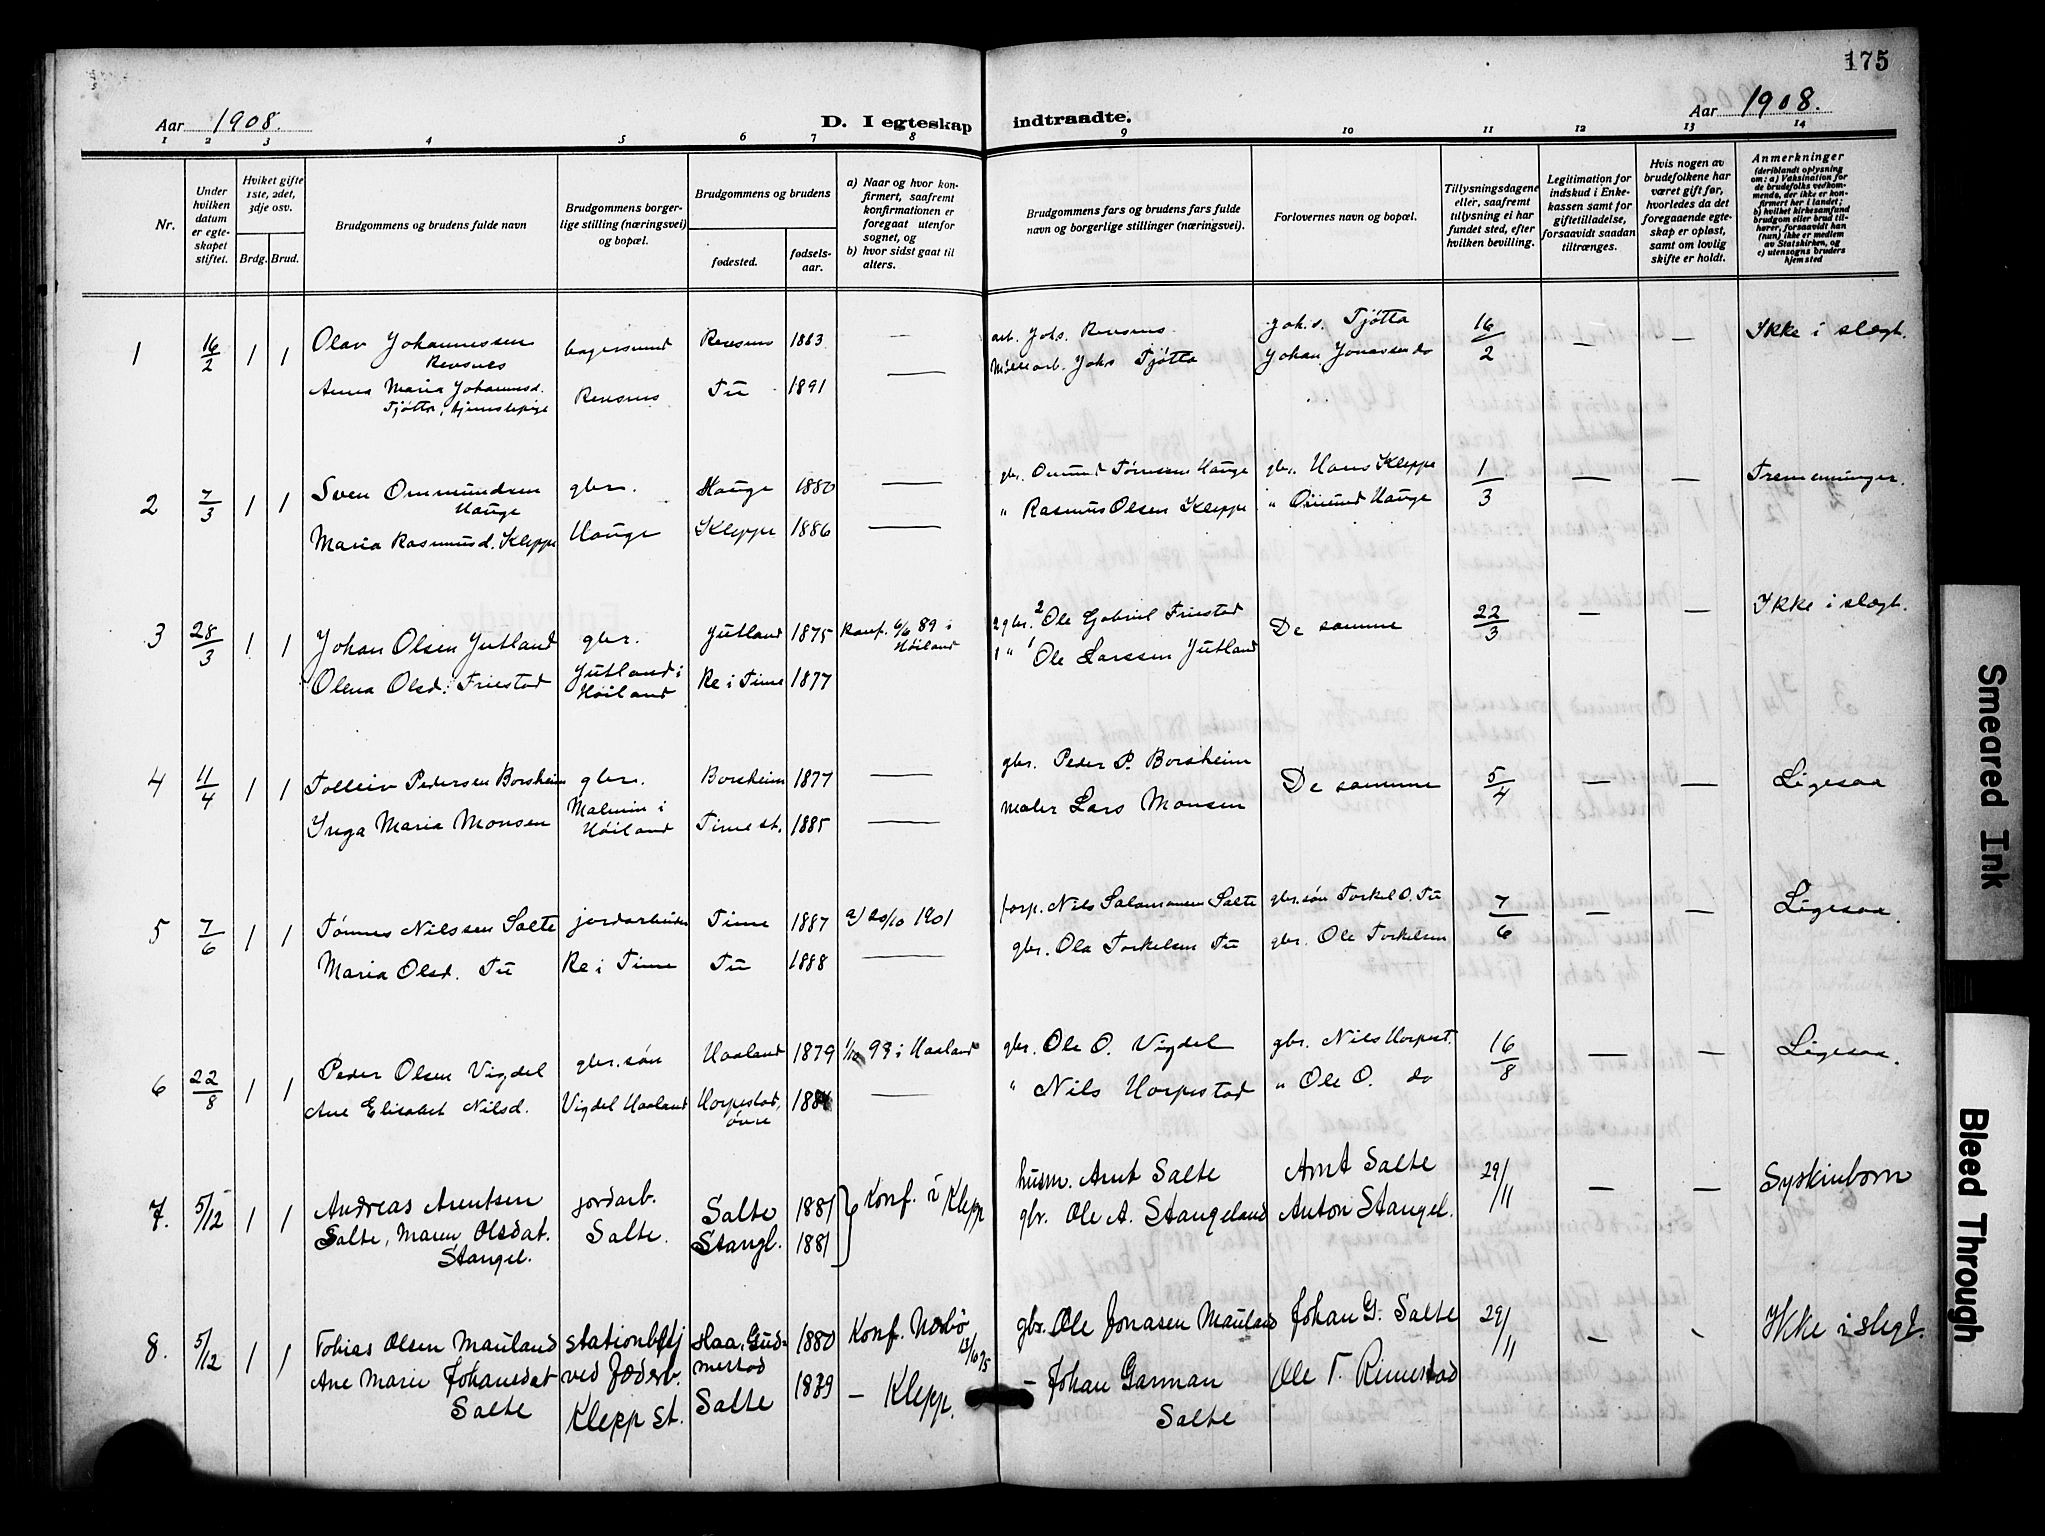 175
Aar 1908.
D. I egteskap indtraadte.
Aar 1908.
1 2 3 4 5 6 7 8 9 10 11 12 13 14
Nr.
Under hvilken datum er egteskapet stiftet.
Hviket gifte 1ste, 2det, 3dje osv.
Brdg. Brud.
Brudgommens og brudens fulde navn
Brudgommens borgerlige stilling (næringsvei) og bopæl.
Brudgommens og brudens
fødested.
fødselsaar.
a) Naar og hvor konfirmert, saafremt konfirmationen er foregaat utenfor sognet, og
b) hvor sidst gaat til alters.
Brudgommens fars og brudens fars fulde navn og borgerlige stillinger (næringsvei).
Forlovernes navn og bopæl.
Tillysningsdagene eller, saafremt tillysning ei har fundet sted, efter hvilken bevilling.
Legitimation for indskud i Enkekassen samt for giftetilladelse, forsaavidt saadan tiltrænges.
Hvis nogen av brudefolkene har været gift før, hvorledes da det foregaaende egteskap er opløst, samt om lovlig skifte er holdt.
Anmerkninger (deriblandt oplysning om: a) Vaksination for de brudefolks vedkommende, der ikke er konfirmert her i landet; b) hvilket kirkesamfund brudgom eller brud tilhører, forsaavidt han (hun) ikke er medlem av Statskirken, og c) utensogns bruders hjemsted
1 16/2 1 1 Olav Johannessen Revsnes Revsnes 1883 — arb. Johs. Revsnes Johs. Tjøtta 16/2 — — Ikke i slægt.
Anna Maria Johannesd. Tjøtta, Revsnes Tu 1891 — arb. Johs Tjøtta Johan Jonassen do
2 7/3 1 1 Sven Ommundsen Hauge gbr. Hauge 1880 — gbr. Omund Tønnesen Hauge gbr. Hans Kleppe 1/3 — — Tremenninger.
Maria Rasmusd. Kleppe Hauge Kleppe 1886 — " Rasmus Olsen Kleppe " Omund Hauge
3 28/3 1 1 Johan Olsen Jutland gbr. Jutland 1875 Konf. 6/6 89 i Høiland 2 gbr. 2 Ole Gabriel Friestad De samme 22/3 — — Ikke i slægt.
Olena Olsd. Friestad Jutland i Høiland Re i Time 1877 1 " 1 Ole Larssen Jutland
4 11/4 1 1 Tolleiv Pedersen Borsheim gbr. Borsheim 1877 — gbr. Peder P. Borsheim De samme 5/4 — — Ligesaa
Inga Maria Monsen Malmin i Høiland Time st. 1885 — maler Lars Monsen
5 7/6 1 1 Tønnes Nilssen Salte jordarbeider Time 1887 a/ 20/10 1901 forp. Nils Salamonsen Salte gbr. søn Torkel O. Tu 7/6 — — Ligesaa.
Maria Olsd. Tu Re i Time Tu 1888 — gbr. Ola Torkelsen Tu gbr. Ole Torkelsen
6 22/8 1 1 Peder Olsen Vigdel gbr. søn Haaland 1879 1/10 93 i Haaland gbr. Ole O. Vigdel gbr. Nils Horpest. 16/8 — — Ligesaa.
Ane Elisabet Nilsd. Vigdel Haaland Horpestad, øvre — " Nils Horpestad " Ole O. do
7. 5/12 1 1 Andreas Arntsen jordarb. Salte 1881 Konf. i Klepp husm. Arnt Salte Arnt Salte 29/11 — — Syskinborn
Salte, Maren Olsdat. Stangel. Salte. Stangl. 1881 gbr. Ole A. Stangeland Anton Stangel.
8. 5/12 1 1 Tobias Olsen Mauland stationbetj Haa, Gudmestad 1880 Konf. Nærbø 13/10 95 gbr. Ole Jonasen Mauland Johan G. Salte 29/11 — — Ikke i slegt.
Ane Marie Johansdat Salte ved Jæderb. Klepp st. Salte — Klepp. — Johan Garman Salte Ole T. Rimestad
Smeared Ink
Bleed Through